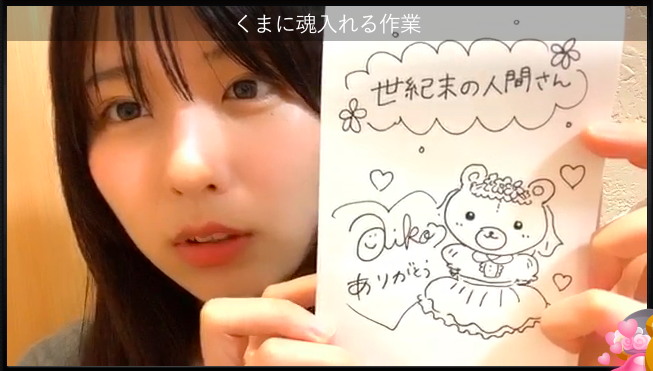 くまに魂入れる作業
世紀末の人間さん
Aiko
ありがとう